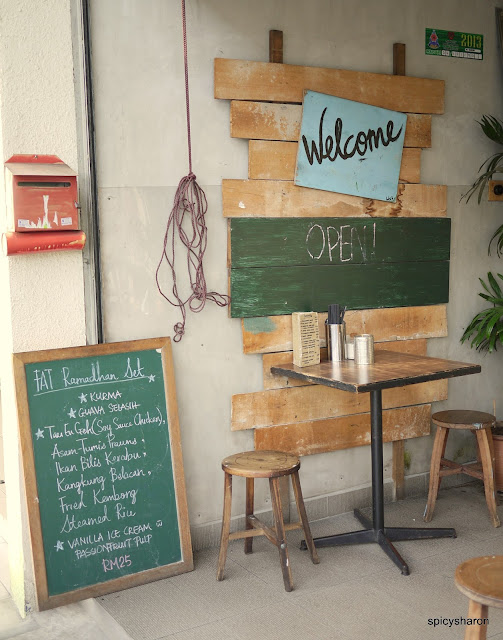 2013
Welcome
OPEN!
FAT Ramadhan Set
★ KURMA ★
★ GUAVA SELASIH
★ Tau Eu Geh (Soy Sauce Chicken),
Asam-Tumis Prawns,
Ikan Bilis Kerabu,
Kangkung Belacan,
Fried Kembong
Steamed Rice
★ VANILLA ICE CREAM
PASSIONFRUIT PULP
RM25
spicysharon